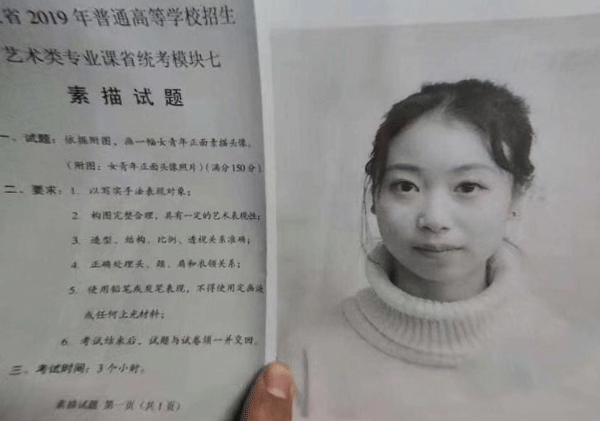 省 2019 年普通高等学校招生
艺术类专业课省统考模块七
素描试题
一、试题：依据附图，画一幅女青年正面素描头像。
（附图：女青年正面头像照片）（满分150分）
二、要求：1. 以写实手法表现对象；
2. 构图完整合理，具有一定的艺术表现性；
3. 造型、结构、比例、透视关系准确；
4. 正确处理头、颈、肩和衣领关系；
5. 使用铅笔或炭笔表现，不得使用定画液
或任何上光材料；
6. 考试结束后，试题与试卷须一并交回。
三、考试时间：3个小时。
素描试题 第一页（共1页）